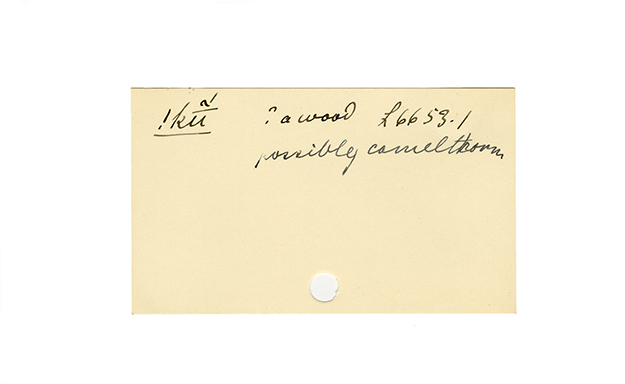 !kũı̋ ? a wood L6653.1
possibly camelthorn